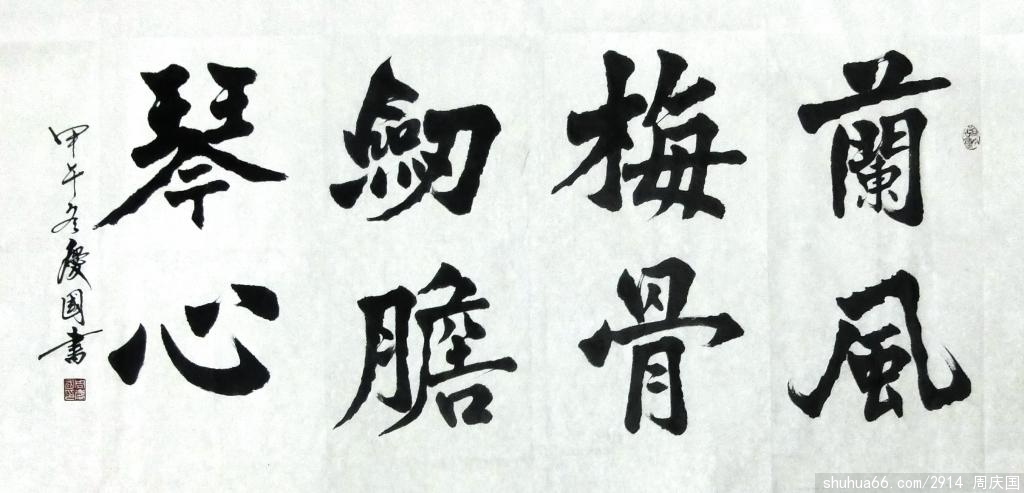 蘭風
梅骨
劒膽
琴心
甲午冬慶国書
shuhua66.com/2914 周庆国